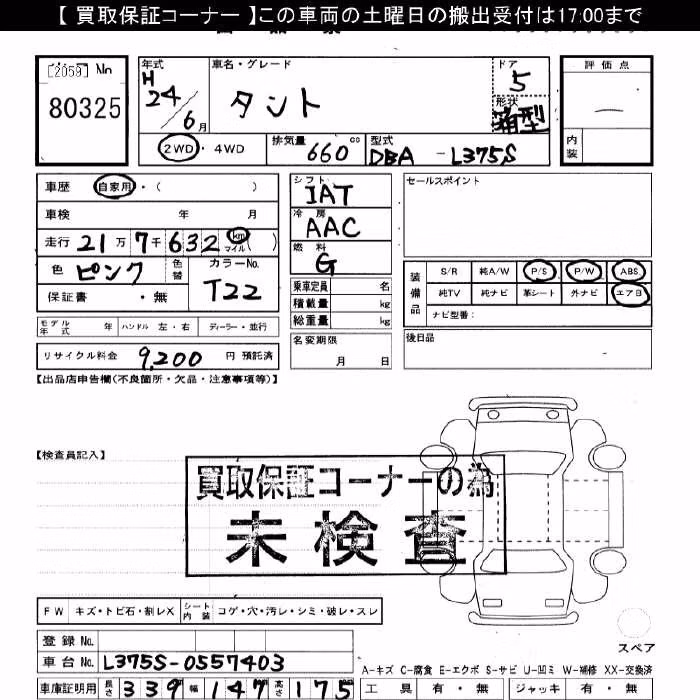 【 買取保証コーナー 】この車両の土曜日の搬出受付は17:00まで
[2059] No
80325
年式 H 24 / 6 月
車名・グレード
タント
ドア 5
形状 箱型
2WD ・ 4WD
排気量 660 cc
型式 DBA - L375S
評価点
—
内装
車歴 自家用 ・ ( )
車検 年 月
走行 21 万 7 千 632 km マイル ( )
色 ピンク 色替 カラーNo. T22
保証書 ・ 無
モデル年式 年 ハンドル 左・右 ディーラー・並行
リサイクル料金 9,200 円 預託済
シフト IAT
冷房 AAC
燃料 G
乗車定員 名
積載量 kg
総重量 kg
名変期限
月 日
セールスポイント
装備品
S/R 純A/W P/S P/W ABS
純TV 純ナビ 革シート 外ナビ エアB
ナビ型番:
後日品
【出品店申告欄(不良箇所・欠品・注意事項等)】
【検査員記入】
買取保証コーナーの為
未検査
FW キズ・トビ石・割レX シート内装 コゲ・穴・汚レ・シミ・破レ・スレ
登録 No.
車台 No. L375S-0557403
車庫証明用 長さ 339 幅 147 高さ 175
スペア
A-キズ C-腐食 E-エクボ S-サビ U-凹ミ W-補修 XX-交換済
工具 有・無 ジャッキ 有・無